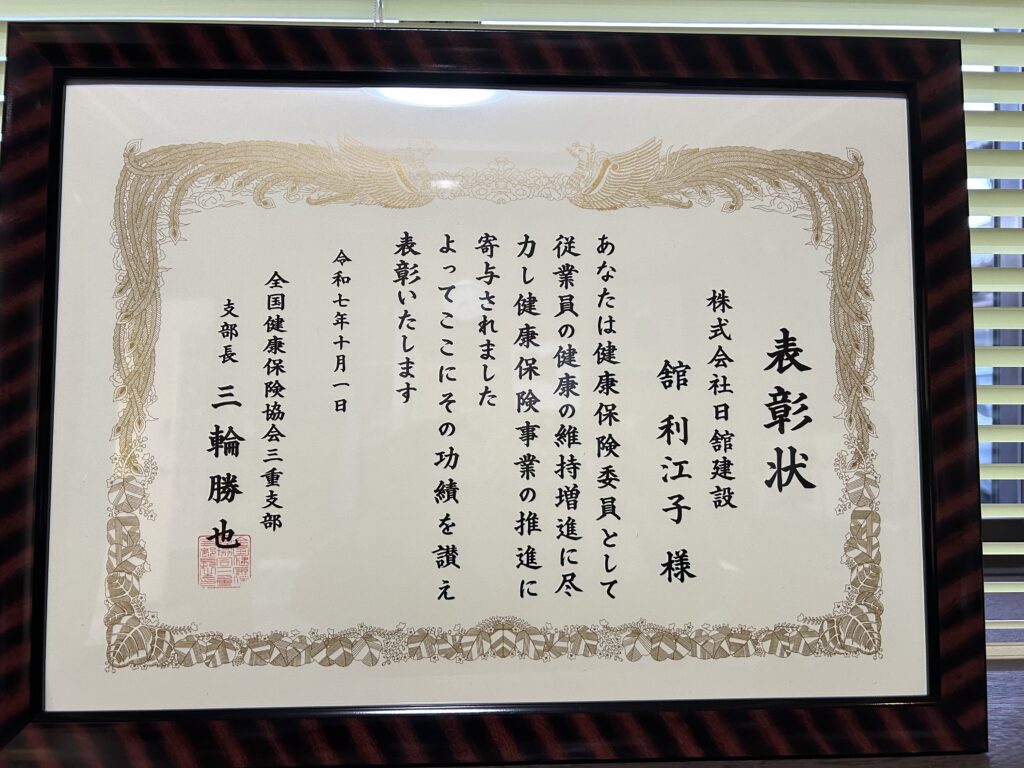 表彰状
株式会社日舘建設
舘利江子様
あなたは健康保険委員として
従業員の健康の維持増進に尽
力し健康保険事業の推進に
寄与されました
よってここにその功績を讃え
表彰いたします
令和七年十月一日
全国健康保険協会三重支部
支部長 三輪勝也